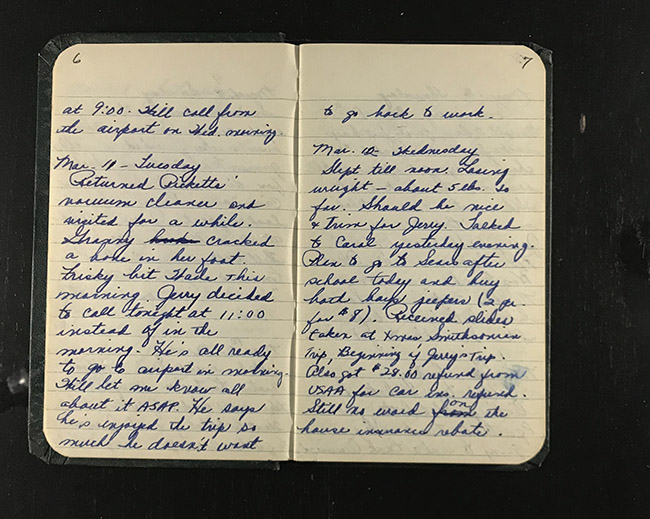 6
at 9:00. Will call from
the airport on Wed. morning.
Mar. 11 - Tuesday
Returned Picketts'
vacuum cleaner and
visited for a while.
Granny cracked
a bone in her foot.
Frisky bit Wade this
morning. Jerry decided
to call tonight at 11:00
instead of in the
morning. He's all ready
to go to airport in morning.
Will let me know all
about it ASAP. He says
he's enjoyed the trip so
much he doesn't want
7
to go back to work.
Mar. 12 - Wednesday
Slept till noon. Losing
wieght - about 5 lbs. so
far. Should be nice
& trim for Jerry. Talked
to Carol yesterday evening.
Plan to go to Sears after
school today and buy
both boys (2 pr.
for $8). Received slides
taken at Xmas, Smithsonian
Trip, Beginning of Jerry's Trip.
Also got $28.00 refund from
USAA for car ins. refund.
Still no word on the
house insurance rebate.